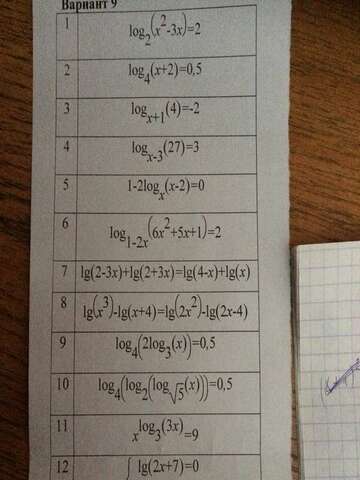 Вариант 9
1 log₂(x²-3x)=2
2 log₄(x+2)=0,5
3 logₓ₊₁(4)=-2
4 logₓ₋₃(27)=3
5 1-2logₓ(x-2)=0
6 log₁₋₂ₓ(6x²+5x+1)=2
7 lg(2-3x)+lg(2+3x)=lg(4-x)+lg(x)
8 lg(x³)-lg(x+4)=lg(2x²)-lg(2x-4)
9 log₄(2log₃(x))=0,5
10 log₄(log₂(log_√5(x)))=0,5
11 x^log₃(3x)=9
12 { lg(2x+7)=0